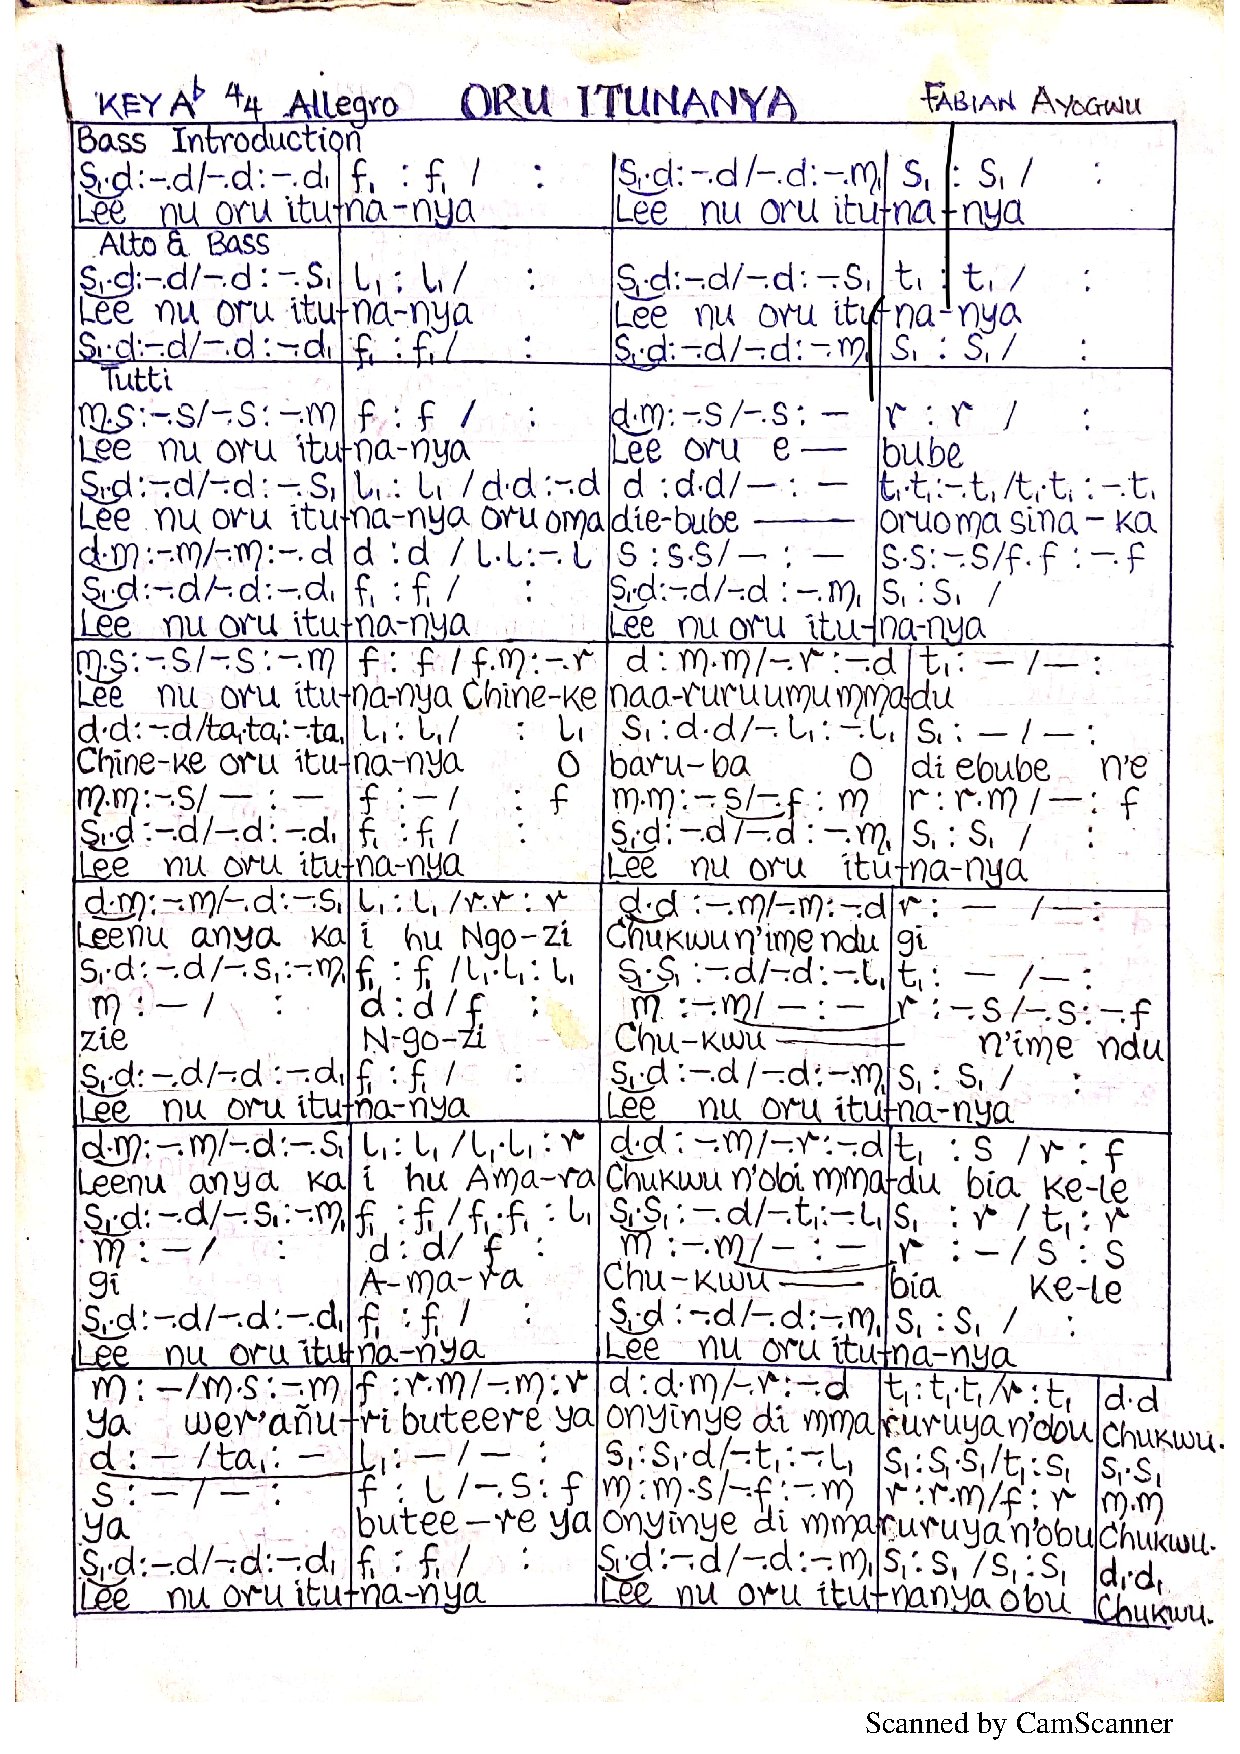 KEY A♭ 4/4 Allegro ORU ITUNANYA FABIAN AYOGWU
Bass Introduction
S₁.d:-.d/-.d:-.d₁ f₁ : f₁ / : S₁.d:-.d/-.d:-.m₁ S₁ : S₁ / :
Lee nu oru itu-na-nya Lee nu oru itu-na-nya
Alto & Bass
S₁.d:-.d/-.d:-.S₁ l₁ : l₁ / : S₁.d:-.d/-.d:-.S₁ t₁ : t₁ / :
Lee nu oru itu-na-nya Lee nu oru itu-na-nya
S₁.d:-.d/-.d:-.d₁ f₁ : f₁ / : S₁.d:-.d/-.d:-.m₁ S₁ : S₁ / :
Tutti
m.s:-.s/-.s:-.m f : f / : d.m:-.s/-.s: - r : r / :
Lee nu oru itu-na-nya Lee oru e — bube
S₁.d:-.d/-.d:-.S₁ l₁ : l₁ / d.d:-.d d : d.d/- : - t₁.t₁:-.t₁/t₁.t₁:-.t₁
Lee nu oru itu-na-nya oru oma die-bube — oru oma sina-ka
d.m:-.m/-.m:-.d d : d / l.l:-.l s : s.s/- : - s.s:-.s/f.f:-.f
S₁.d:-.d/-.d:-.d₁ f₁ : f₁ / : S₁.d:-.d/-.d:-.m₁ S₁ : S₁ /
Lee nu oru itu-na-nya Lee nu oru itu-na-nya
m.s:-.s/-.s:-.m f : f / f.m:-.r d : m.m/-.r:-.d t₁ : - / - :
Lee nu oru itu-na-nya Chine-ke naa-ruru umu mma-du
d.d:-.d/ta₁.ta₁:-.ta₁ l₁ : l₁ / : l₁ S₁ : d.d/-.l₁:-.l₁ S₁ : - / - :
Chine-ke oru itu-na-nya O baru-ba O di ebube n'e
m.m:-.s/ - : - f : - / : f m.m:-.s/-.f : m r : r.m / - : f
S₁.d:-.d/-.d:-.d₁ f₁ : f₁ / : S₁.d:-.d/-.d:-.m₁ S₁ : S₁ / :
Lee nu oru itu-na-nya Lee nu oru itu-na-nya
d.m:-.m/-.d:-.S₁ l₁ : l₁ / r.r : r d.d:-.m/-.m:-.d r : - / - :
Leenu anya ka i hu Ngo-zi Chukwu n'ime ndu gi
S₁.d:-.d/-.S₁:-.m₁ f₁ : f₁ / l₁.l₁ : l₁ S₁.S₁:-.d/-.d:-.l₁ t₁ : - / - :
m : - / : d : d / f : m :-.m/ - : - r :-.s/-.s:-.f
zie N-go-zi Chu-kwu — n'ime ndu
S₁.d:-.d/-.d:-.d₁ f₁ : f₁ / : S₁.d:-.d/-.d:-.m₁ S₁ : S₁ / :
Lee nu oru itu-na-nya Lee nu oru itu-na-nya
d.m:-.m/-.d:-.S₁ l₁ : l₁ / l₁.l₁ : r d.d:-.m/-.r:-.d t₁ : s / r : f
Leenu anya ka i hu Ama-ra Chukwu n'obi mma-du bia ke-le
S₁.d:-.d/-.S₁:-.m₁ f₁ : f₁ / f₁.f₁ : l₁ S₁.S₁:-.d/-.t₁:-.l₁ S₁ : r / t₁ : r
m : - / : d : d / f : m :-.m/ - : - r : - / s : s
gi A-ma-ra Chu-kwu — bia ke-le
S₁.d:-.d/-.d:-.d₁ f₁ : f₁ / : S₁.d:-.d/-.d:-.m₁ S₁ : S₁ / :
Lee nu oru itu-na-nya Lee nu oru itu-na-nya
m : -/m.s:-.m f : r.m/-.m : r d : d.m/-.r:-.d t₁ : t₁.t₁/r : t₁ d.d
ya wer'añu-ri buteere ya onyinye di mma ruruya n'obu Chukwu.
d : - / ta₁ : - l₁ : - / - : S₁ : S₁.d/-.t₁:-.l₁ S₁ : S₁.S₁/t₁ : S₁ S₁.S₁
s : - / - : f : l / -.s : f m : m.s/-.f:-.m r : r.m/f : r m.m
ya butee-re ya onyinye di mma ruruya n'obu Chukwu.
S₁.d:-.d/-.d:-.d₁ f₁ : f₁ / : S₁.d:-.d/-.d:-.m₁ S₁ : S₁ / S₁ : S₁ d₁.d₁
Lee nu oru itu-na-nya Lee nu oru itu-nanya obu Chukwu.
Scanned by CamScanner